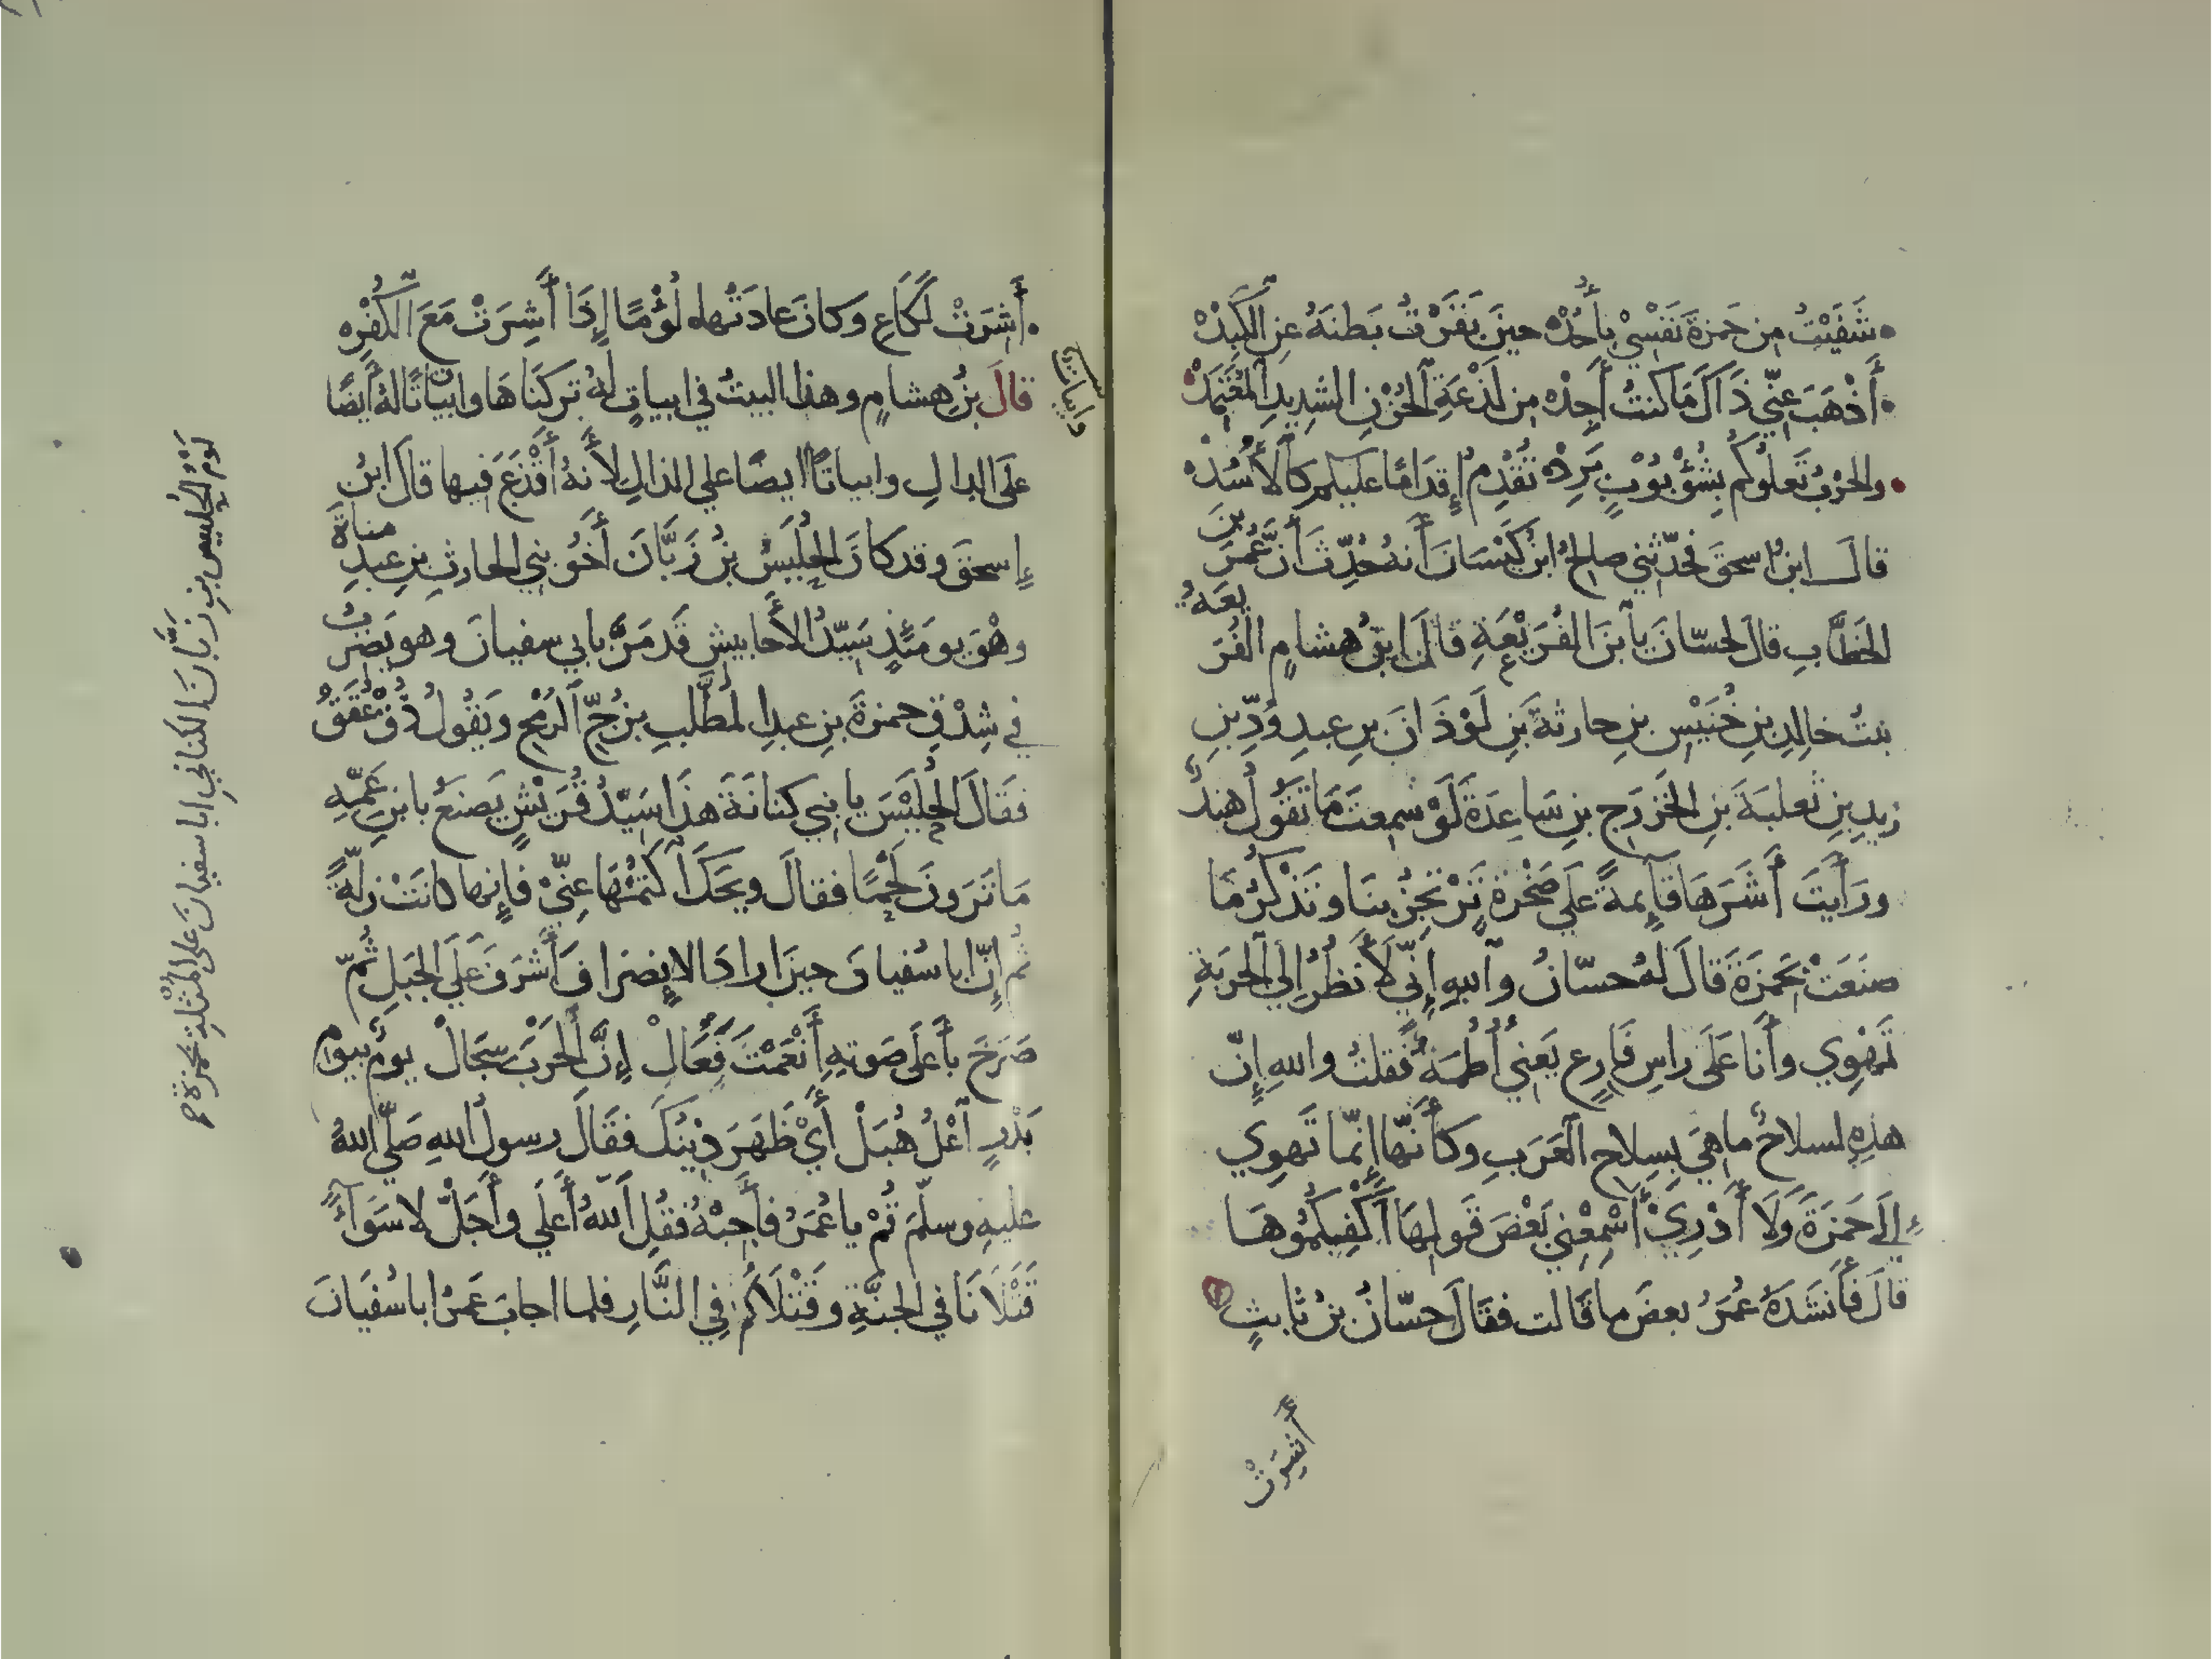 شَفَيْتُ مِن حَمزةَ نَفْسِيْ بِأُحُدْ ه حِينَ بَقَرْتُ بَطنَهُ عَنِ الكَبِدْ ه
أَذْهَبَ عَنِّي ذَاكَ مَا كنتُ أَجِدْ ه مِن لَذْعَةِ الحُزْنِ الشدِيدِ المُعْتَمِدْ
والحَرْبُ تَعلُوكُم بِشُؤْبُوْبٍ بَرِدْ ه تُقْدِمُ إِقدَامًا عليكم كَالأُسُدْ ه
قالَ ابنُ اسحقَ فحَدّثني صالحُ ابنُ كَيْسَانَ أَنهُ حُدِّثَ أَنَّ عُمَرَ بنَ
الخَطَّابِ قالَ لحسّانَ يا ابنَ الفُرَيْعَةِ قالَ ابنُ هشامٍ الفُرَيعَةُ
بنتُ خالِدِ بنِ خُنَيْسِ بنِ حارثةَ بنِ لَوْذَانَ بنِ عبدِ وُدِّ بنِ
زيدِ بنِ ثعلبَةَ بنِ الخَزرَجِ بنِ سَاعِدَةَ لَوْ سَمِعتَ مَا تَقُولُ هندٌ
ورَأَيتَ أَشَرَهَا قَائِمةً عَلَي صَخْرَةٍ تَرْتَجِزُ بنَا وتَذْكُرُ مَا
صنَعَتْ بحَمزَةَ قالَ لهُ حسّانُ والله إِنِّي لَأَنظُرُ إِلي الحَربَةِ
تَهْوِي وأَنا عَلَى راسِ فَارِعٍ يَعنِي أُطُمَهُ فقلتُ والله إِنّ
هذِهِ لسلاحٌ ما هيَ بِسِلاحِ العَرَبِ وكأَنّها إِنّما تَهوِي
إِلَي حَمزَةَ وَلَا أَدْرِيْ أَسْمِعْنِي بَعْضَ قَولِهَا أَكْفِيكُمُوهَا
قالَ فأَنشَدَهُ عُمَرُ بعضَ ما قَالت فقَالَ حسّانُ بنُ ثَابتٍ
أَشِرَتْ
أَشِرَتْ لَكَاعِ وَكانَ عادَتُها ه لُؤْمًا إِذَا أَشِرَتْ مَعَ الكُفْرِ ه
قالَ بنُ هشامٍ وهذا البيتُ في ابياتٍ لهُ تركنَاهَا وابياتًا لهُ أَيضًا
وابياتًا
عَلَى الدالِ وابياتًا ايضًا علي الذالِ لأَنهُ أَقْذَعَ فيها قالَ ابنُ
إِسحقَ وقد كانَ الحُلَيسُ بنُ زَبَّانَ أَخُو بني الحارثِ بنِ عبدِ مناةَ
وهْوَ يومَئذٍ سَيّدُ الأَحابيشِ قَد مَرَّ بابي سفيانَ وهو يَضرِبُ
في شِدْقِ حمزةَ بنِ عبدِ المُطَّلبِ بزُجِّ الرُمْحِ ويَقُولُ ذُقْ عُقَقُ
فقَالَ الحُلَيْسُ يا بني كنانَةَ هذَا سَيّدُ قُرَيْشٍ يَصنَعُ بابنِ عَمِّهِ
مَا تَرَونَ لَحْمًا فقالَ ويحَكَ اكتُمْهَا عنِّيْ فإِنها كانَتْ زَلّةً
ثُم إِنّ ابا سُفيانَ حينَ ارادَ الانصِرافَ أَشرَفَ عَلَي الجَبَلِ ثُمّ
صَرَخَ بأَعلَى صَوتهِ أَنْعَمْتَ فَعَالِ إِنَّ الحَرْبَ سِجَالْ يومٌ بيومِ
بَدْرٍ اعْلُ هُبَلْ أَيْ ظَهَرَ دِينُكَ فقَالَ رسولُ الله صَلّي اللهُ
عليهِ وسلّمَ قُمْ يا عُمَرُ فأَجِبْهُ فقُلِ اللهُ أَعلَي وأَجَلّ لا سَوَآءً
قَتْلَانَا في الجنَّةِ وقَتْلَاكُم فِي النَّارِ فلما اجابَ عَمرُ ابا سُفيَانَ
لَوْمُ الحُلَيسِ بنِ زَبَّانَ الكنانيِ ابا سفيانَ على المُثْلةِ بحمزةَ